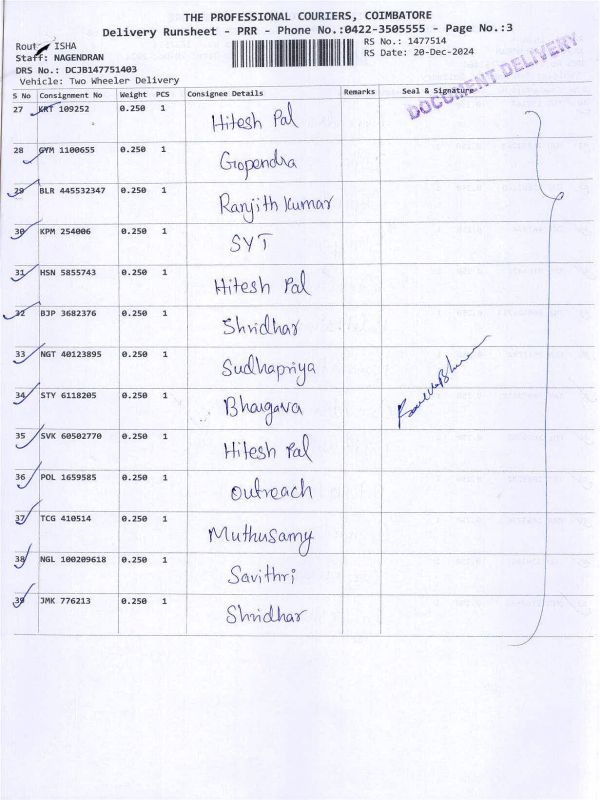 THE PROFESSIONAL COURIERS, COIMBATORE
Delivery Runsheet - PRR - Phone No.:0422-3505555 - Page No.:3
Route: ISHA
Staff: NAGENDRAN
DRS No.: DCJB147751403
Vehicle: Two Wheeler Delivery
RS No.: 1477514
RS Date: 20-Dec-2024
DOCUMENT DELIVERY
S No Consignment No Weight PCS Consignee Details Remarks Seal & Signature
27 KRT 109252 0.250 1 Hitesh Pal
28 GYM 1100655 0.250 1 Gopendra
29 BLR 445532347 0.250 1 Ranjith Kumar
30 KPM 254006 0.250 1 SYT
31 HSN 5855743 0.250 1 Hitesh Pal
32 BJP 3682376 0.250 1 Shridhar
33 NGT 40123895 0.250 1 Sudhapriya
34 STY 6118205 0.250 1 Bhargava
35 SVK 60502770 0.250 1 Hitesh Pal
36 POL 1659585 0.250 1 Outreach
37 TCG 410514 0.250 1 Muthusamy
38 NGL 100209618 0.250 1 Savithri
39 JMK 776213 0.250 1 Shridhar